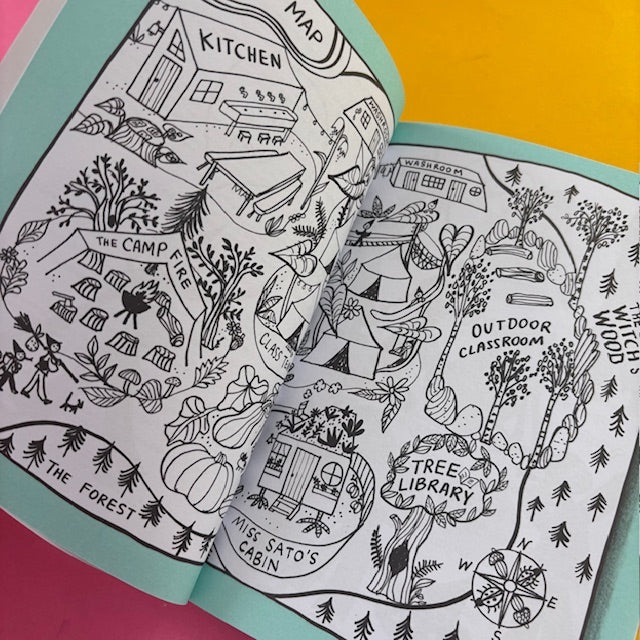 MAP
KITCHEN
THE CAMP FIRE
CLASS
THE FOREST
WASHROOM
OUTDOOR
CLASSROOM
WITCH'S
WOOD
TREE
LIBRARY
MISS SATO'S
CABIN
N
W
E
S